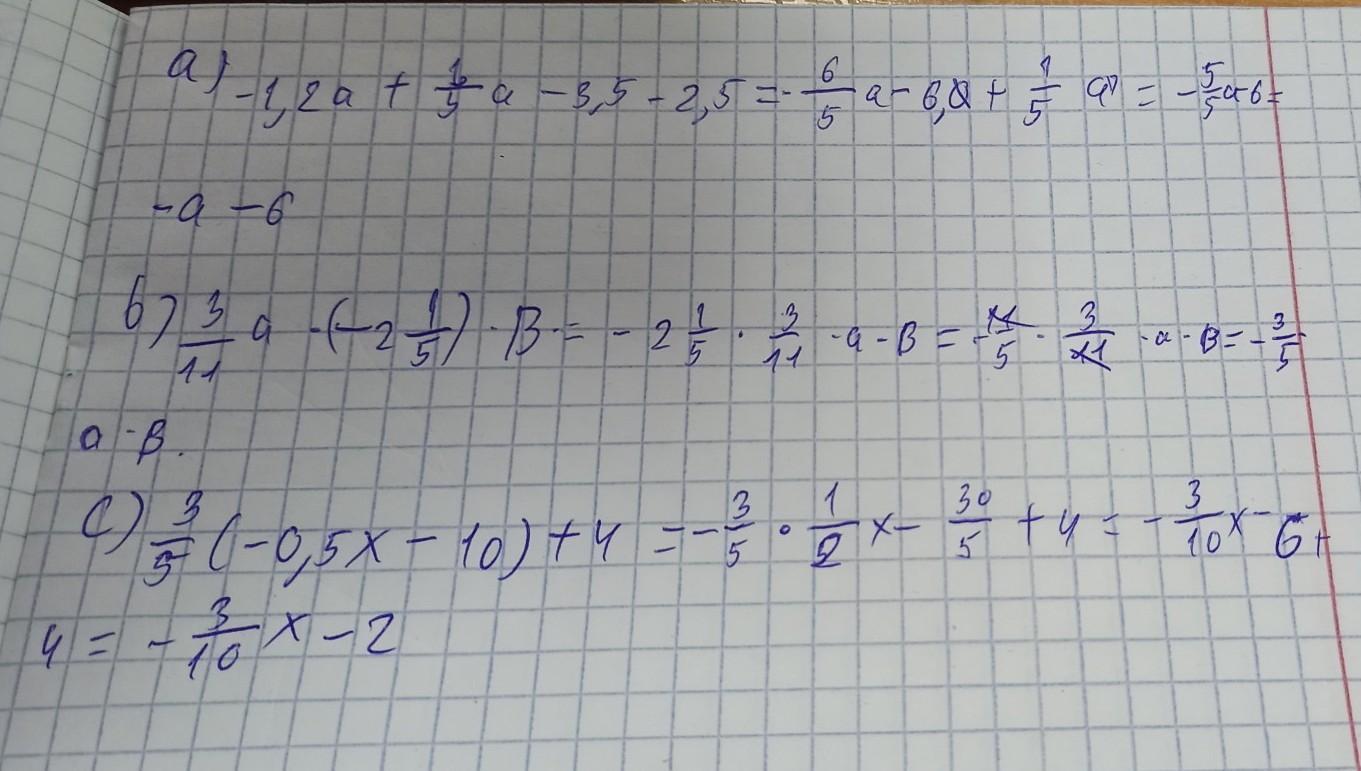 a) -1,2a + 1/5 a - 3,5 - 2,5 = - 6/5 a - 6,0 + 1/5 a = - 5/5 a - 6 =
-a - 6
b) 3/11 a · (-2 1/5) · B = - 2 1/5 · 3/11 · a · B = - 11/5 · 3/11 · a · B = - 3/5
a · B.
c) 3/5 (-0,5x - 10) + 4 = - 3/5 · 1/2 x - 30/5 + 4 = - 3/10 x - 6 +
4 = - 3/10 x - 2